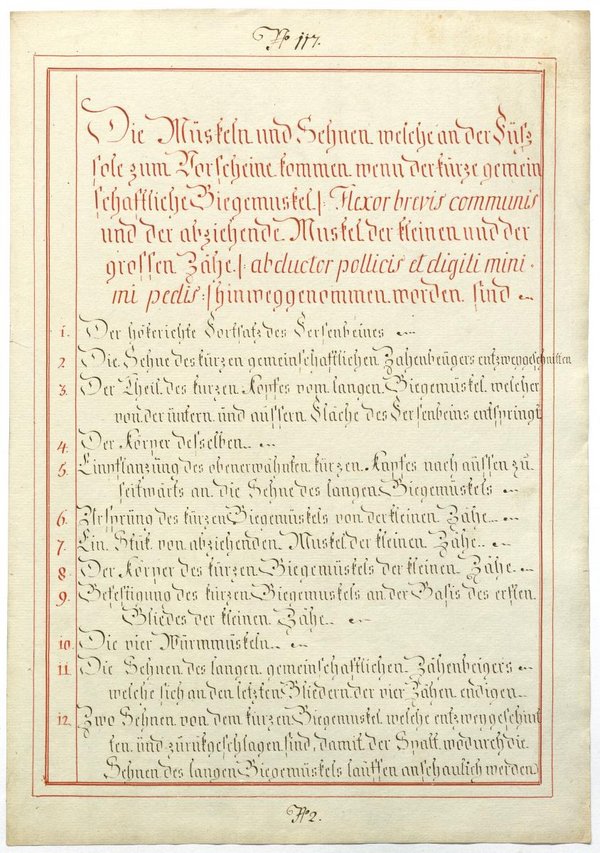 No 117.
Die Müskeln und Sehnen welche an der Füs:
sole zum Vorscheine kommen wenn der kürze gemein
schaftliche Biegemuskel |: Flexor brevis communis
und der abziehende Muskel der kleinen und der
grossen Zähe |: abductor pollicis et digiti mini-
mi pedis :| hinweggenommen worden sind
1. Der hökerichte Fortsatz des Fersenbeines
2 Die Sehne des kürzen gemeinschaftlichen Zähenbeügers entzweygeschnitten
3. Der Theil des kürzen Kopfes vom langen Biegemüskel welcher
von der üntern und aüssern Fläche des Fersenbeins entspringt
4. Der Körper desselben
5. Einpflanzüng des obenerwähnten kürzen Kopfes nach aüssen zü
seitwärts an die Sehne des langen Biegemüskels
6. Ursprüng des kürzen Biegemüskels von der kleinen Zähe
7. Ein Stük von abziehenden Muskel der kleinen Zähe
8. Der Körper des kürzen Biegemüskels der kleinen Zähe
9. Befestigüng des kürzen Biegemuskels an der Basis des ersten
Gliedes der kleinen Zähe
10. Die vier Würmmüskeln
11. Die Sehnen des langen gemeinschaftlichen Zähenbeigers
welche sich an den letzten Gliedern der vier Zähen endigen
12. Zwo Sehnen von dem kürzen Biegemuskel welche entzweygeschnit
ten und zürükgeschlagen sind, damit der Spalt wodurch die
Sehnen des langen Biegemüskels lauffen anschaulich werden
No 2.